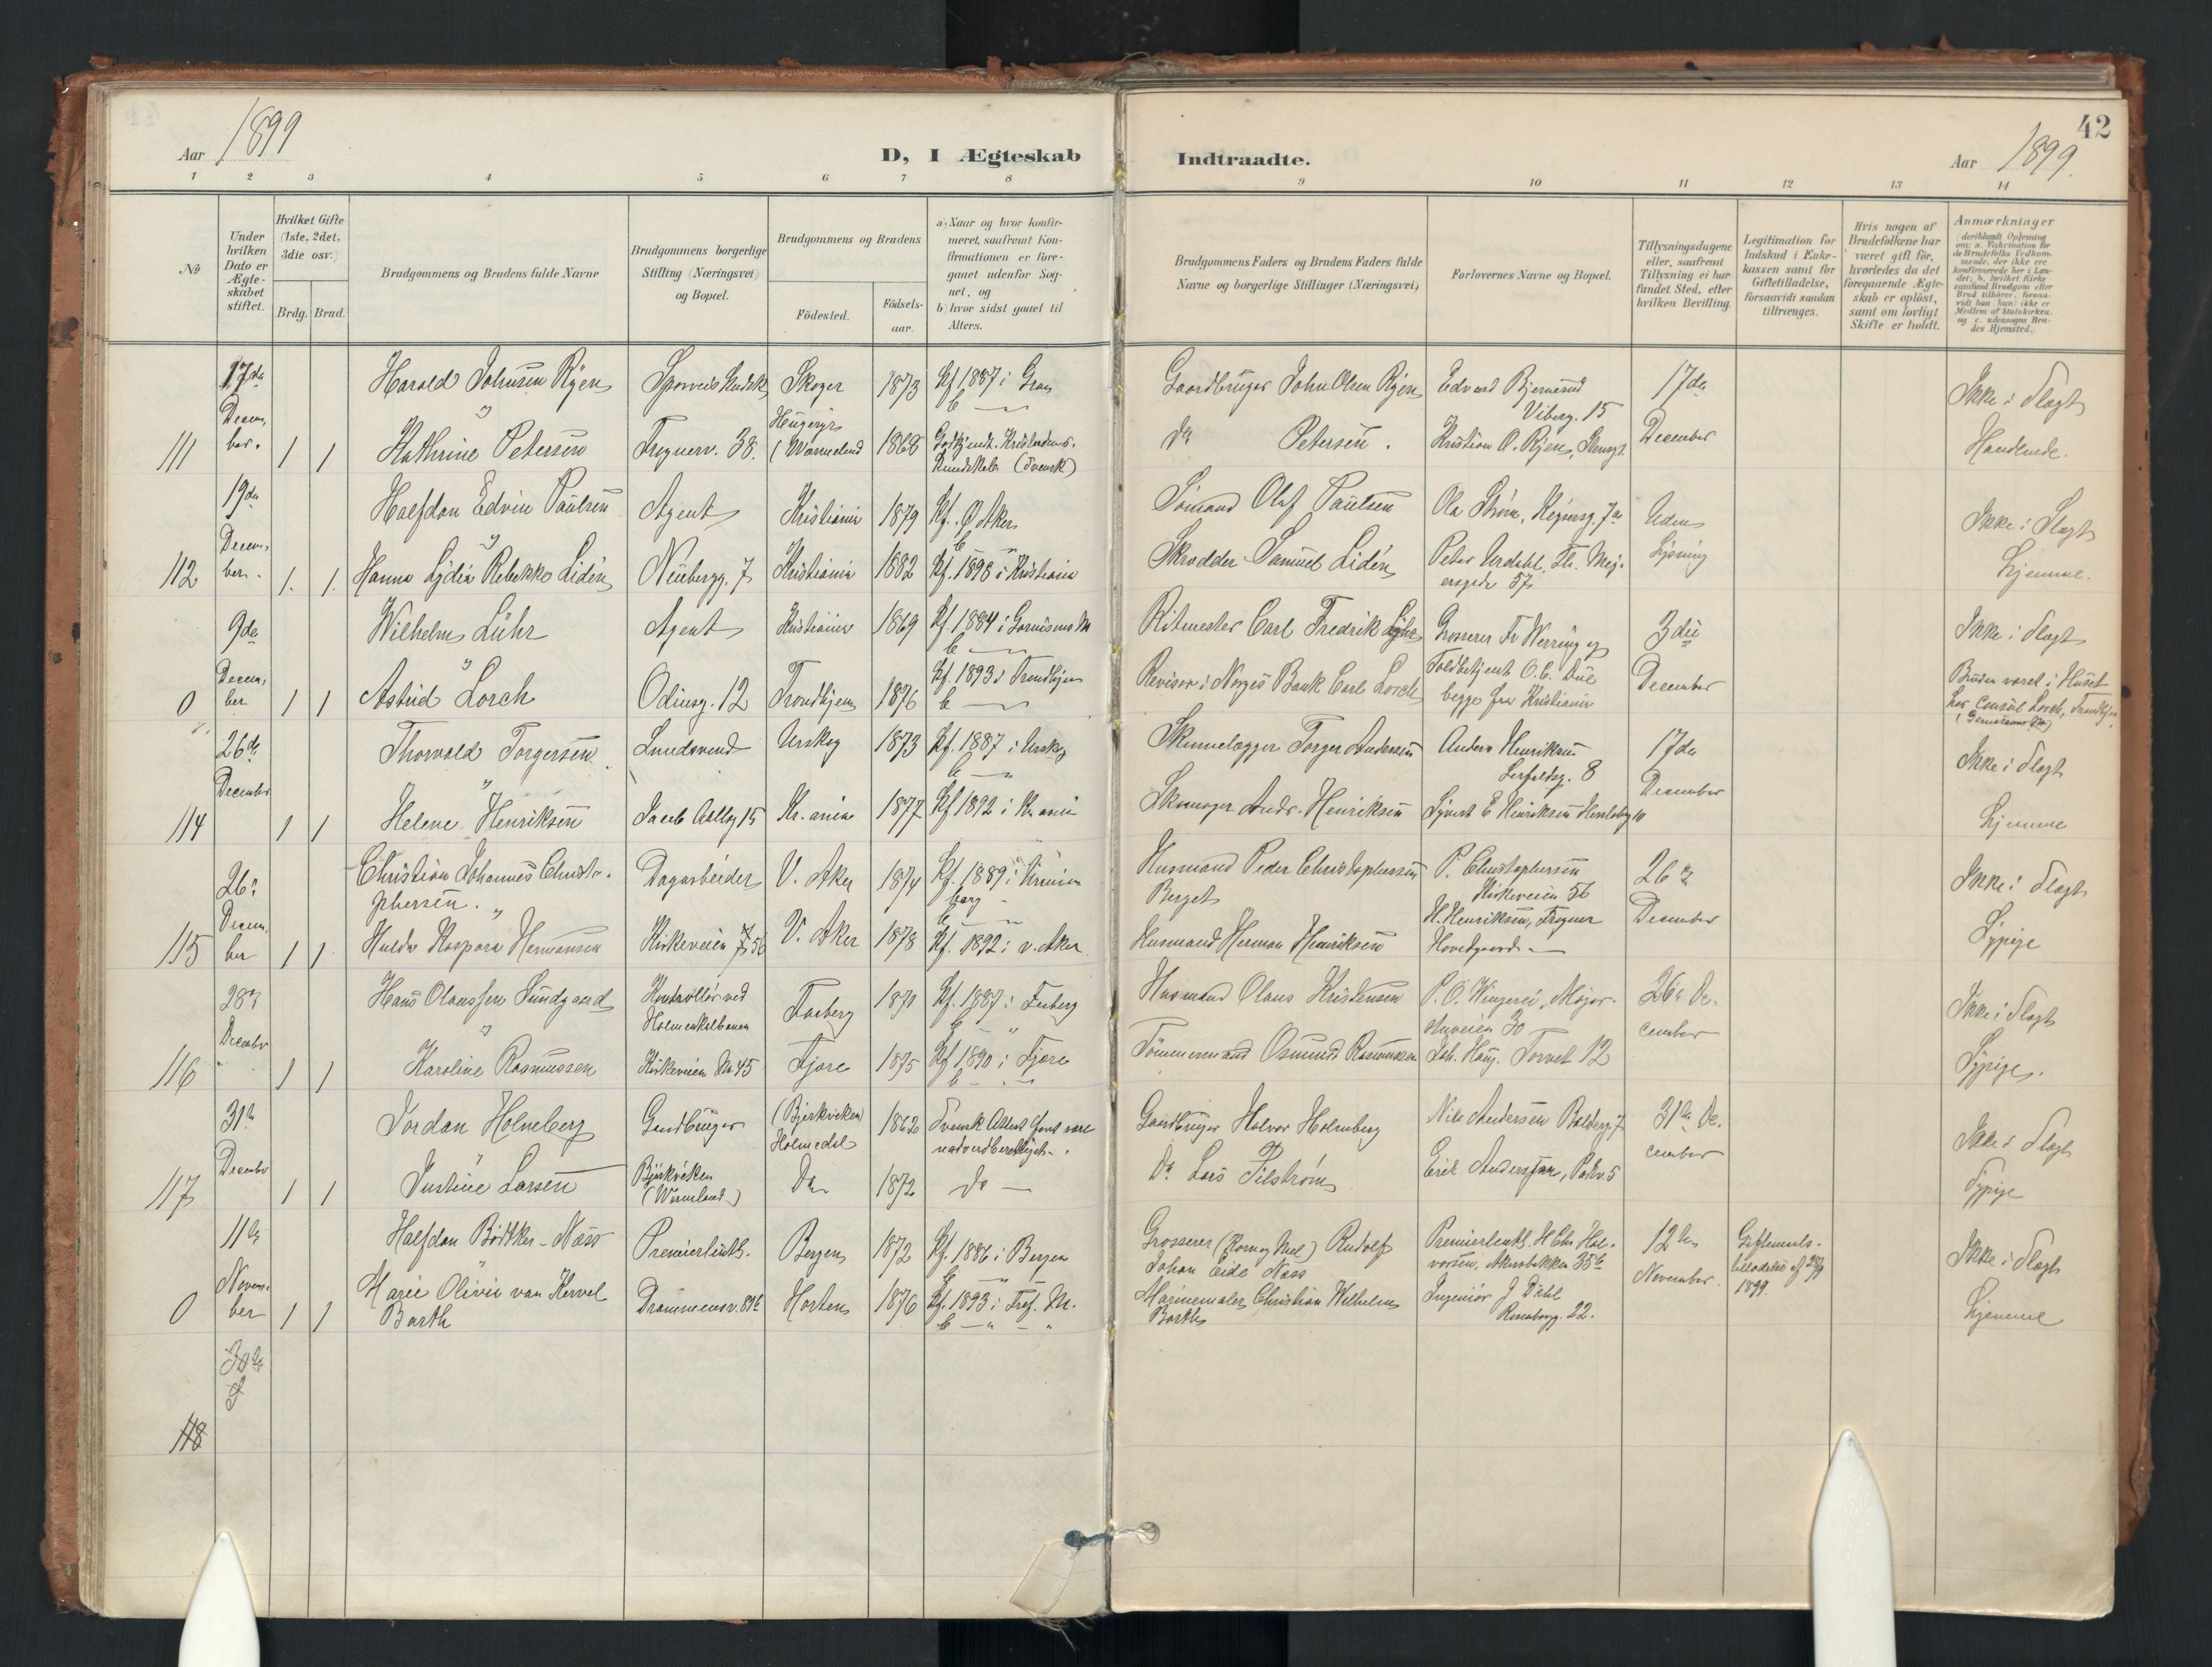 42
Aar 1899
D, I Ægteskab
Indtraadte.
Aar 1899.
1 2 3 4 5 6 7 8 9 10 11 12 13 14
№
Under
hvilken
Dato er
Ægte-
skabet
stiftet.
Hvilket Gifte
(1ste, 2det,
3die osv.)
Brdg. Brud.
Brudgommens og Brudens fulde Navne
Brudgommens borgerlige
Stilling (Næringsvei)
og Bopæl.
Brudgommens og Brudens
Födested.
Födsels-
aar.
a) Naar og hvor konfir-
meret, saafremt Kon-
firmationen er fore-
gaaet udenfor Sog-
net, og
b) hvor sidst gaaet til
Alters.
Brudgommens Faders og Brudens Faders fulde
Navne og borgerlige Stillinger (Næringsvei)
Forlovernes Navne og Bopæl.
Tillysningsdagene
eller, saafremt
Tillysning ei har
fundet Sted, efter
hvilken Bevilling.
Legitimation for
Indskud i Enke-
kassen samt for
Giftetilladelse,
forsaavidt saadan
tiltrænges.
Hvis nogen af
Brudefolkene har
været gift før,
hvorledes da det
foregaaende Ægte-
skab er oplöst,
samt om lovligt
Skifte er holdt.
Anmærkninger
(deriblandt Oplysning
om: a. Vakcination for
de Brudefolks Vedkom-
mende, der ikke ere
konfirmerede her i Lan-
det; b. hvilket Kirke-
samfund Brudgom eller
Brud tilhører, forsaa-
vidt han (hun) ikke er
Medlem af Statskirken,
og c. udensogns Bru-
des Hjemsted.)
111
17de
Decem,
ber.
1 1
Harald Johnsen Ryen
Kathrine Petersen
Sporveis Kudsk
Frognerv. 38.
Skoger
(Wärmeland
1873
1868
Kf 1887 i Gran
b
Godkjendt. Kristendoms.
Kundskab. (svensk)
Gaardbruger John Olsen Ryen
do Petersen.
Edvard Bjernerud
Viberg. 15
Kristian O. Ryen,
17de
December
Ikke i Slægt
112
19de
Decem,
ber.
1. 1.
Halfdan Edvin Paulsen
Hanna Lydia Rebekka Lidén
Agent
Neubergg. 7
Kristiania
Kristiania
1879
1882
Kf. Ø Aker
b
Kf. 1898 i Kristiania
Sömand Olaf Paulsen
Skrædder Samuel Lidén
Ola Strøm, Keysersg. 7
Peter Urdahl, Th. Mey-
ersgade 57
Uden
Lysning
Ikke i Slægt
Hjemme.
0
9de
Decem,
ber
1 1
Wilhelm Lühr
Astrid Lorch
Agent
Odinsg. 12
Kristiania
Trondhjem
1869
1876
Kf. 1884 i Garnisons M
b
Kf. 1893 i Trondhjem
b
Ritmester Carl Fredrik Lühr
Revisor i Norges Bank Carl Lorch
Grosserer Fr Werring og
Toldbetjent O. C. Due
begge fra Kristiania
3die
December
Ikke i Slægt
Bruden været i Huset
hos Consul Lorch, Trondhjem
(Garnisons M)
114
26de
December
1 1
Thorvald Torgersen
Helene Henriksen
Jacob Aallsg 15
Urskog
Kr. ania
1873
1877
Kf. 1887 i Urskog
b
Kf 1892 i Kr ania
Skinnelægger Torger Andersen
Skomager Andr. Henriksen
Anders Henriksen
8
Syvert E Henriksen 10
17de
December
Ikke i Slægt
Hjemme
115
26.
Decem,
ber
1 1
Christian Johannes Christo-
phersen.
Hulda Kaspara Hermansen
Dagarbeider
Kirkeveien 56
V. Aker
V. Aker
1874
1878
Kf. 1889 i
b
Kf. 1892 i v. Aker
Husmand Peder Christophersen
Berget
Husmand Herman Henriksen
P. Christophersen
Kirkeveien 56
H. Henriksen, Frogner
Hovedgaard
26de
December
Ikke i Slægt
Sypige
116
28de
December
1 1
Hans Olaussen Sundgaard
Karoline Rasmussen
Kontrollör ved
Holmenkolbanen
Kirkeveien No. 45
Faaberg
Fjære
1870
1875
Kf. 1887 i Faaberg
b
Kf 1890 i Fjære
b
Husmand Olaus Kristensen
Tömmermand Osmund Rasmussen
P. O. Major-
stuveien 30
Joh. Haug. Torvet 12
26de De-
cember
Ikke i Slægt
Sypige.
117
31te
December
1 1
Jordan Holmberg
Justine Larsen
Gaardbruger
Björkviken
(Wärmland)
(Bjørkviken)
Holmedal
Do
1862
1872
Svensk Attest
Do
Gaardbruger Halvor Holmberg
Do Lars Pilström
Nils Andersen Baldersg 7
Erik Anderssen, Parkv. 5
31te De-
cember
Ikke i Slægt
Sypige
0
11te
Novem-
ber
1 1
Halfdan Bödtker-Næss
Marie Olivia van Kervel
Barth
Premierløitn.
Drammensv. 81b
Bergen
Horten
1872
1876
Kf. 1886 i Bergen
b
Kf. 1893 i Tref. M.
b
Grosserer (Korn og Mel) Rudolf
Johan Eide Næss
Marinemaler Christian Wilhelm
Barth
Premierløitn. H Chr Hal-
vorsen, Akersbakken 35b
Ingeniör J Dahl
Rosenborgg. 22.
12te
November
Giftermaals-
tilladelse af
1899.
Ikke i Slægt
Hjemme
30te
118